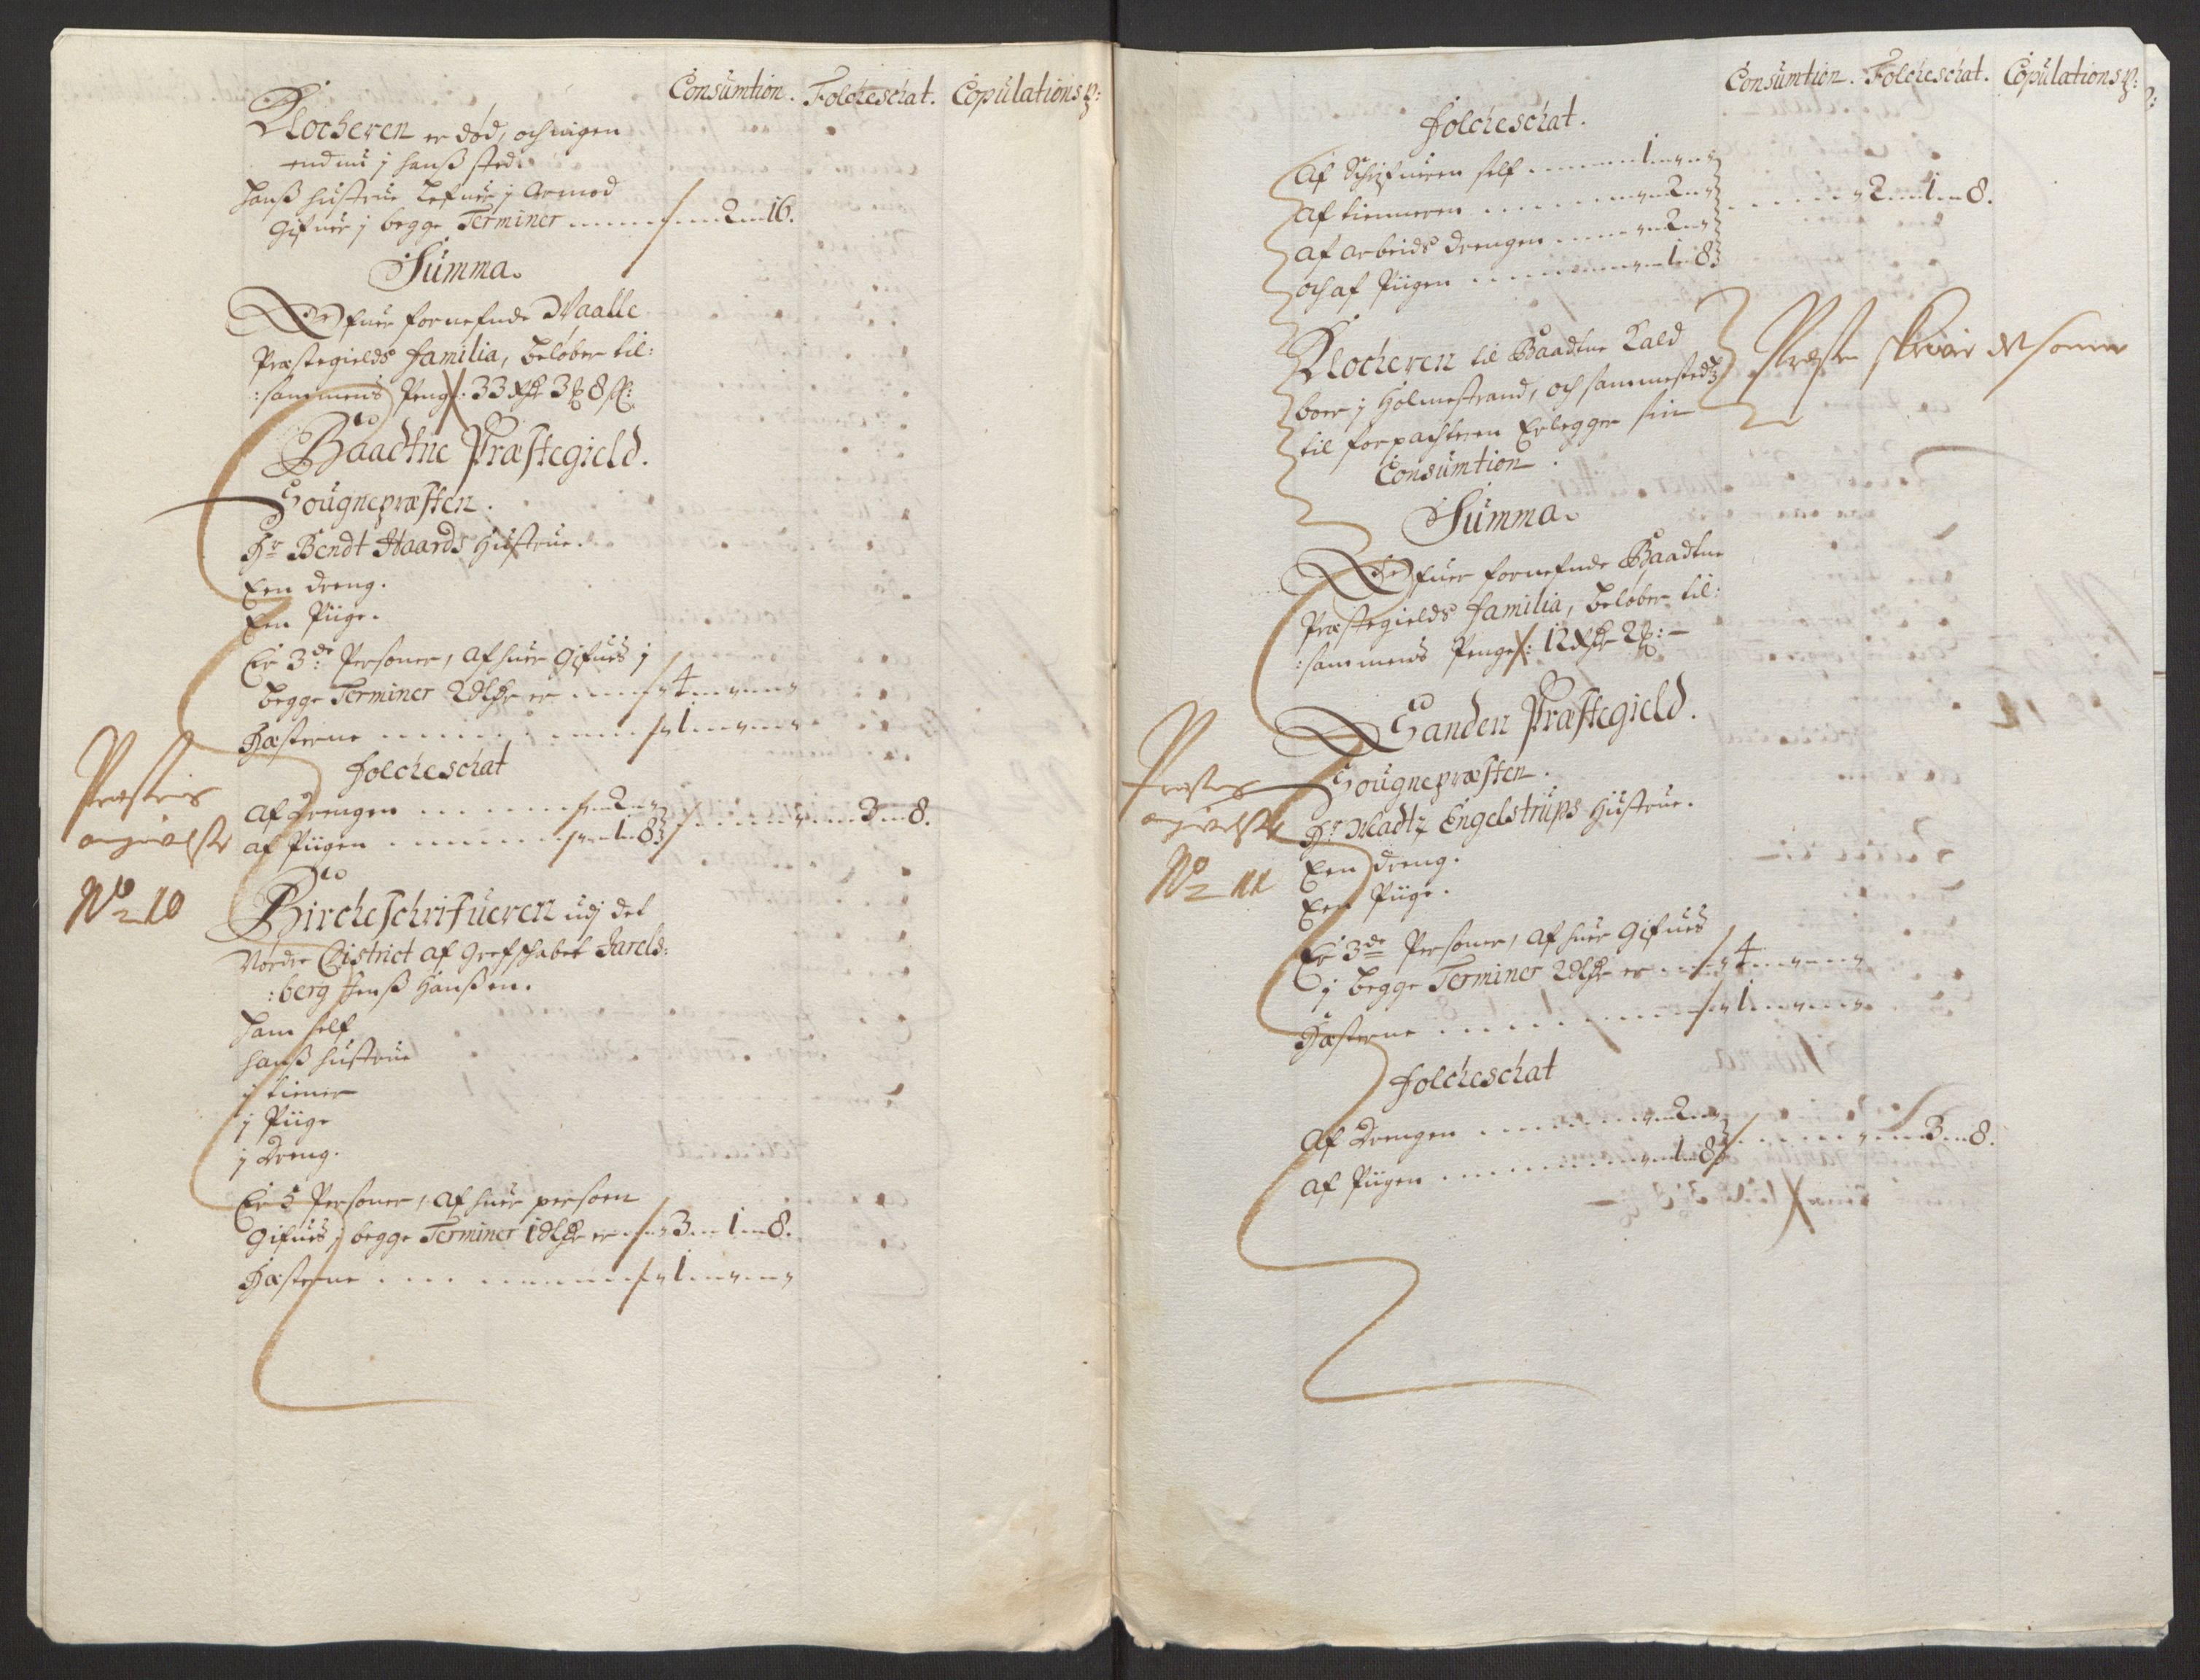 Consumtion. Folcheschat. Copulations p:
Klocheren er død, och ingen
endnu j hanß sted.
hanß hustrue Lefuer j Armod
Gifuer j begge Terminer ...... 2 - 16.
Summa.
Ofuer fornefnde Waalle
Præstegields familia, beløber til:
:sammens Penge: 33 Rdr 3 ₰ 8 ß:
Baadtne Præstegield.
Sougnepræsten.
Hr Bendt Haards Hustrue.
Een dreng.
Een Piige.
Er 3de Personer, af huer Gifues j
begge Terminer 2 dlr er ..... 4 - " - "
Hæsterne ........ 1 - " - "
Folcheschat
Af Drengen ...... " - 2 - "
af Piigen ....... " - 1 - 8 } ..... " - 3 - 8.
Præstens
angivelse
No 10
Bircheschrifueren udj det
Nordre District af Grefschabet Jarels:
:berg Jenß Hanßen.
ham self
hanß hustrue
j tiener
j Piige
j Dreng.
Er 5 Personer, af huer persoen
Gifues j begge Terminer 1 dlr er .. 3 - 1 - 8.
Hæsterne ........ 1 - " - "
Consumtion. Folcheschat. Copulations p:
Folcheschat.
Af Schrifueren self ...... 1 - " - "
af tienneren ....... " - 2 - "
af arbeids drengen ..... " - 2 - "
och af Piigen ....... " - 1 - 8 } ..... 2 - 1 - 8.
Klocheren til Baadtne Kald
boer j Holmestrand, och sammestedtz
til forpachteren Erlegger sin
Consumtion.
Præsten skriver det samme
Summa.
Ofuer fornefnde Baadtne
Præstegields familia, beløber til:
:sammens Penge: 12 Rdr 2 ₰: -
Sanden Præstegield.
Sougnepræsten.
Hr Madtz Engelstrups Hustrue.
Een dreng.
Een Piige.
Præstens
angivelse
No 11
Er 3de Personer, af huer Gifues
j begge Terminer 2 dlr er .... 4 - " - "
Hæsterne ........ 1 - " - "
Folcheschat
Af Drengen ...... " - 2 - "
af Piigen ....... " - 1 - 8 } ..... " - 3 - 8.